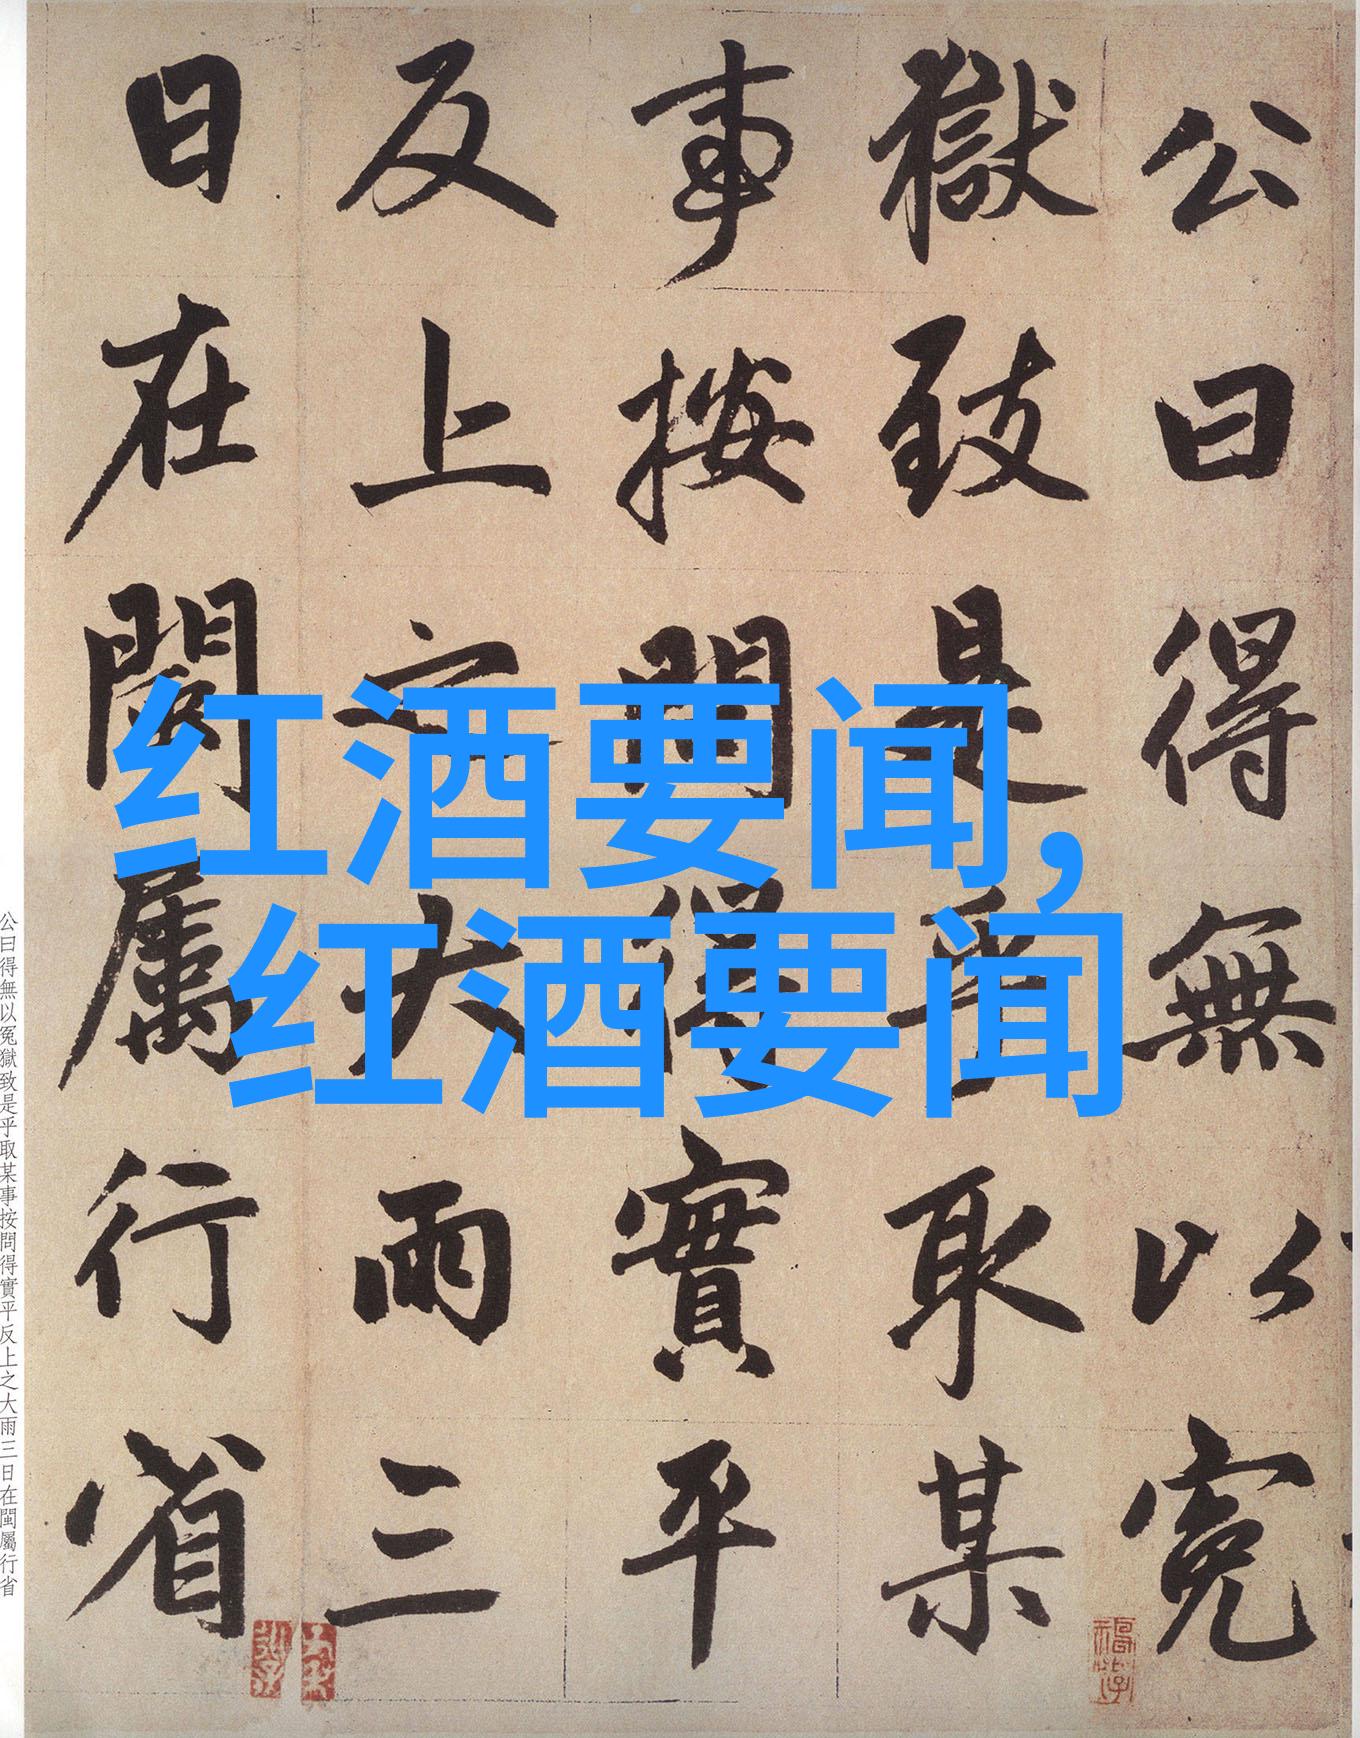 公曰得無以冤
獄致是乎取某
事按問得實平
反上之大雨三
日在閩屬行省
红酒要闻,
红酒要闻
公曰得無以冤獄致是乎取某事按問得實平反上之大雨三日在閩屬行省